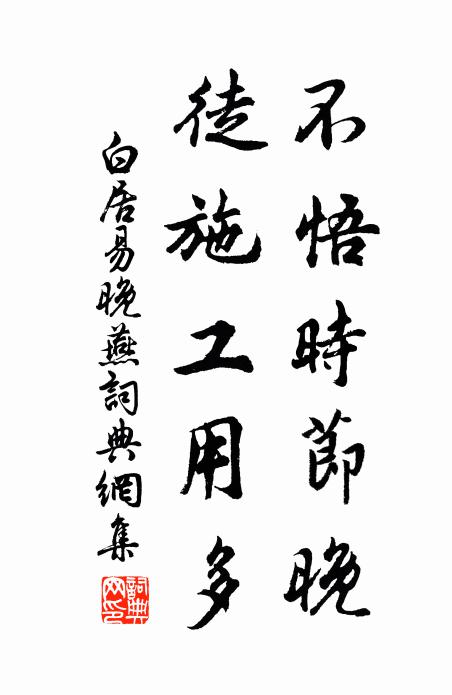 不悟時節晚
徒施工用多
白居易晚燕詞典網集
詞典网印